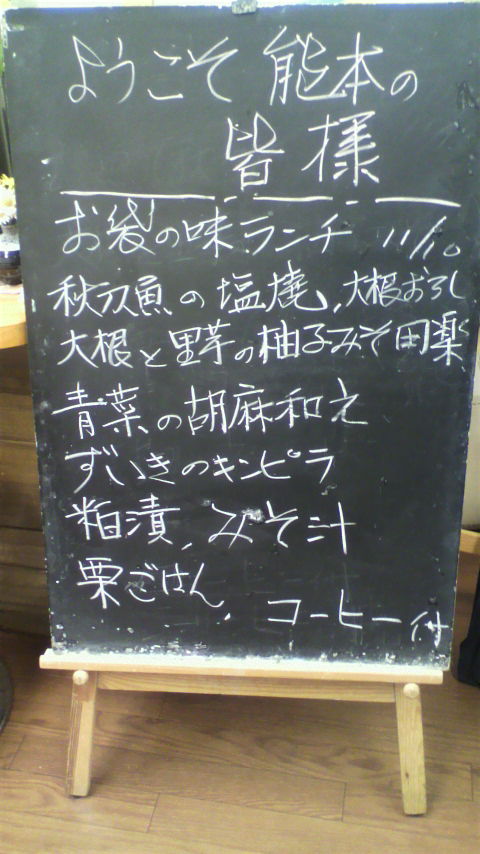 ようこそ 熊本の
皆様
お袋の味ランチ 11/10
秋刀魚の塩焼、大根おろし
大根と里芋の柚子みそ田楽
青菜の胡麻和え
ずいきのキンピラ
粕漬、みそ汁
栗ごはん、
コーヒー付